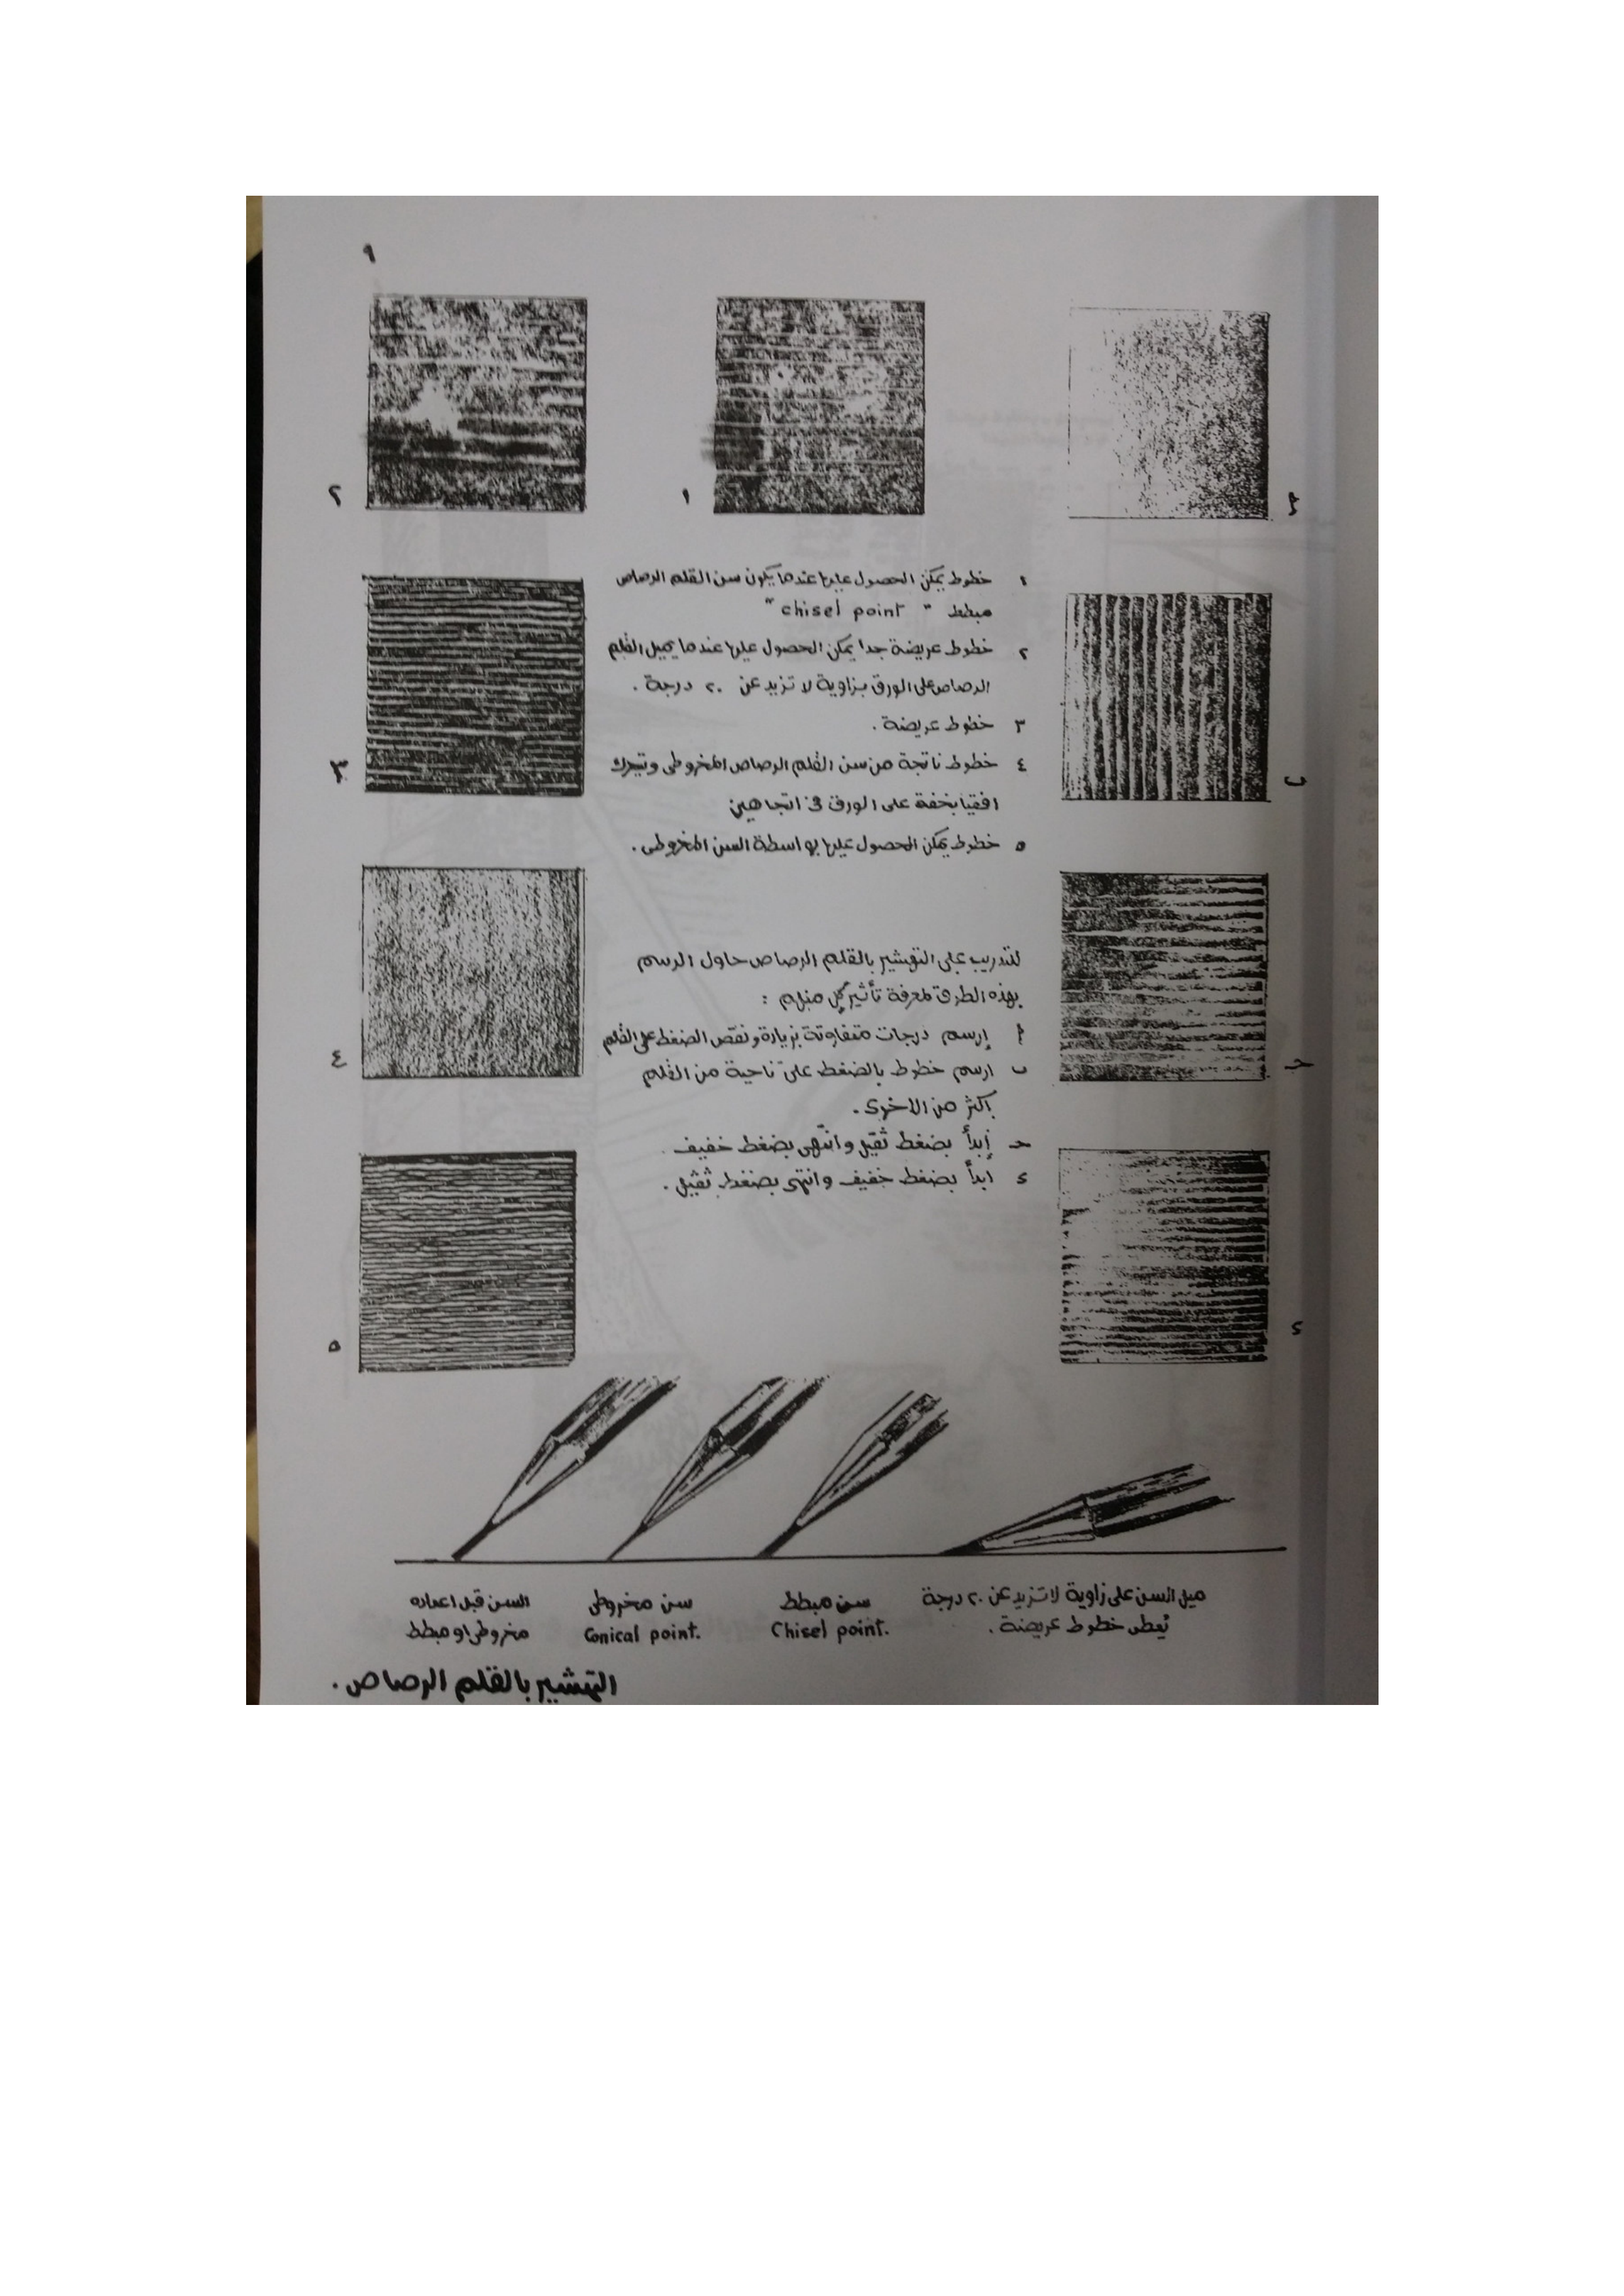 ٩
٢
١
أ
١ خطوط يمكن الحصول عليها عندما يكون سن القلم الرصاص
مبطط " chisel point "
٢ خطوط عريضة جدا يمكن الحصول عليها عندما يميل القلم
الرصاص على الورق بزاوية لا تزيد عن ٢٠ درجة .
٣ خطوط عريضة .
٤ خطوط ناتجة من سن القلم الرصاص المخروطى ويتحرك
افقيا بخفة على الورق فى اتجاهين
٥ خطوط يمكن الحصول عليها بواسطة السن المخروطى .
٣
ب
للتدريب على التهشير بالقلم الرصاص حاول الرسم
بهذه الطرق لمعرفة تأثير كل منهم :
أ إرسم درجات متفاوتة بزيادة ونقص الضغط على القلم
ب ارسم خطوط بالضغط على ناحية من القلم
أكثر من الاخرى .
حـ إبدأ بضغط ثقيل وانتهى بضغط خفيف .
د ابدأ بضغط خفيف وانتهى بضغط ثقيل .
٤
حـ
٥
د
ميل السن على زاوية لا تزيد عن ٢٠ درجة
يُعطى خطوط عريضة .
سن مبطط
Chisel point.
سن مخروطى
Conical point.
السن قبل اعداده
مخروطى او مبطط
التهشير بالقلم الرصاص .